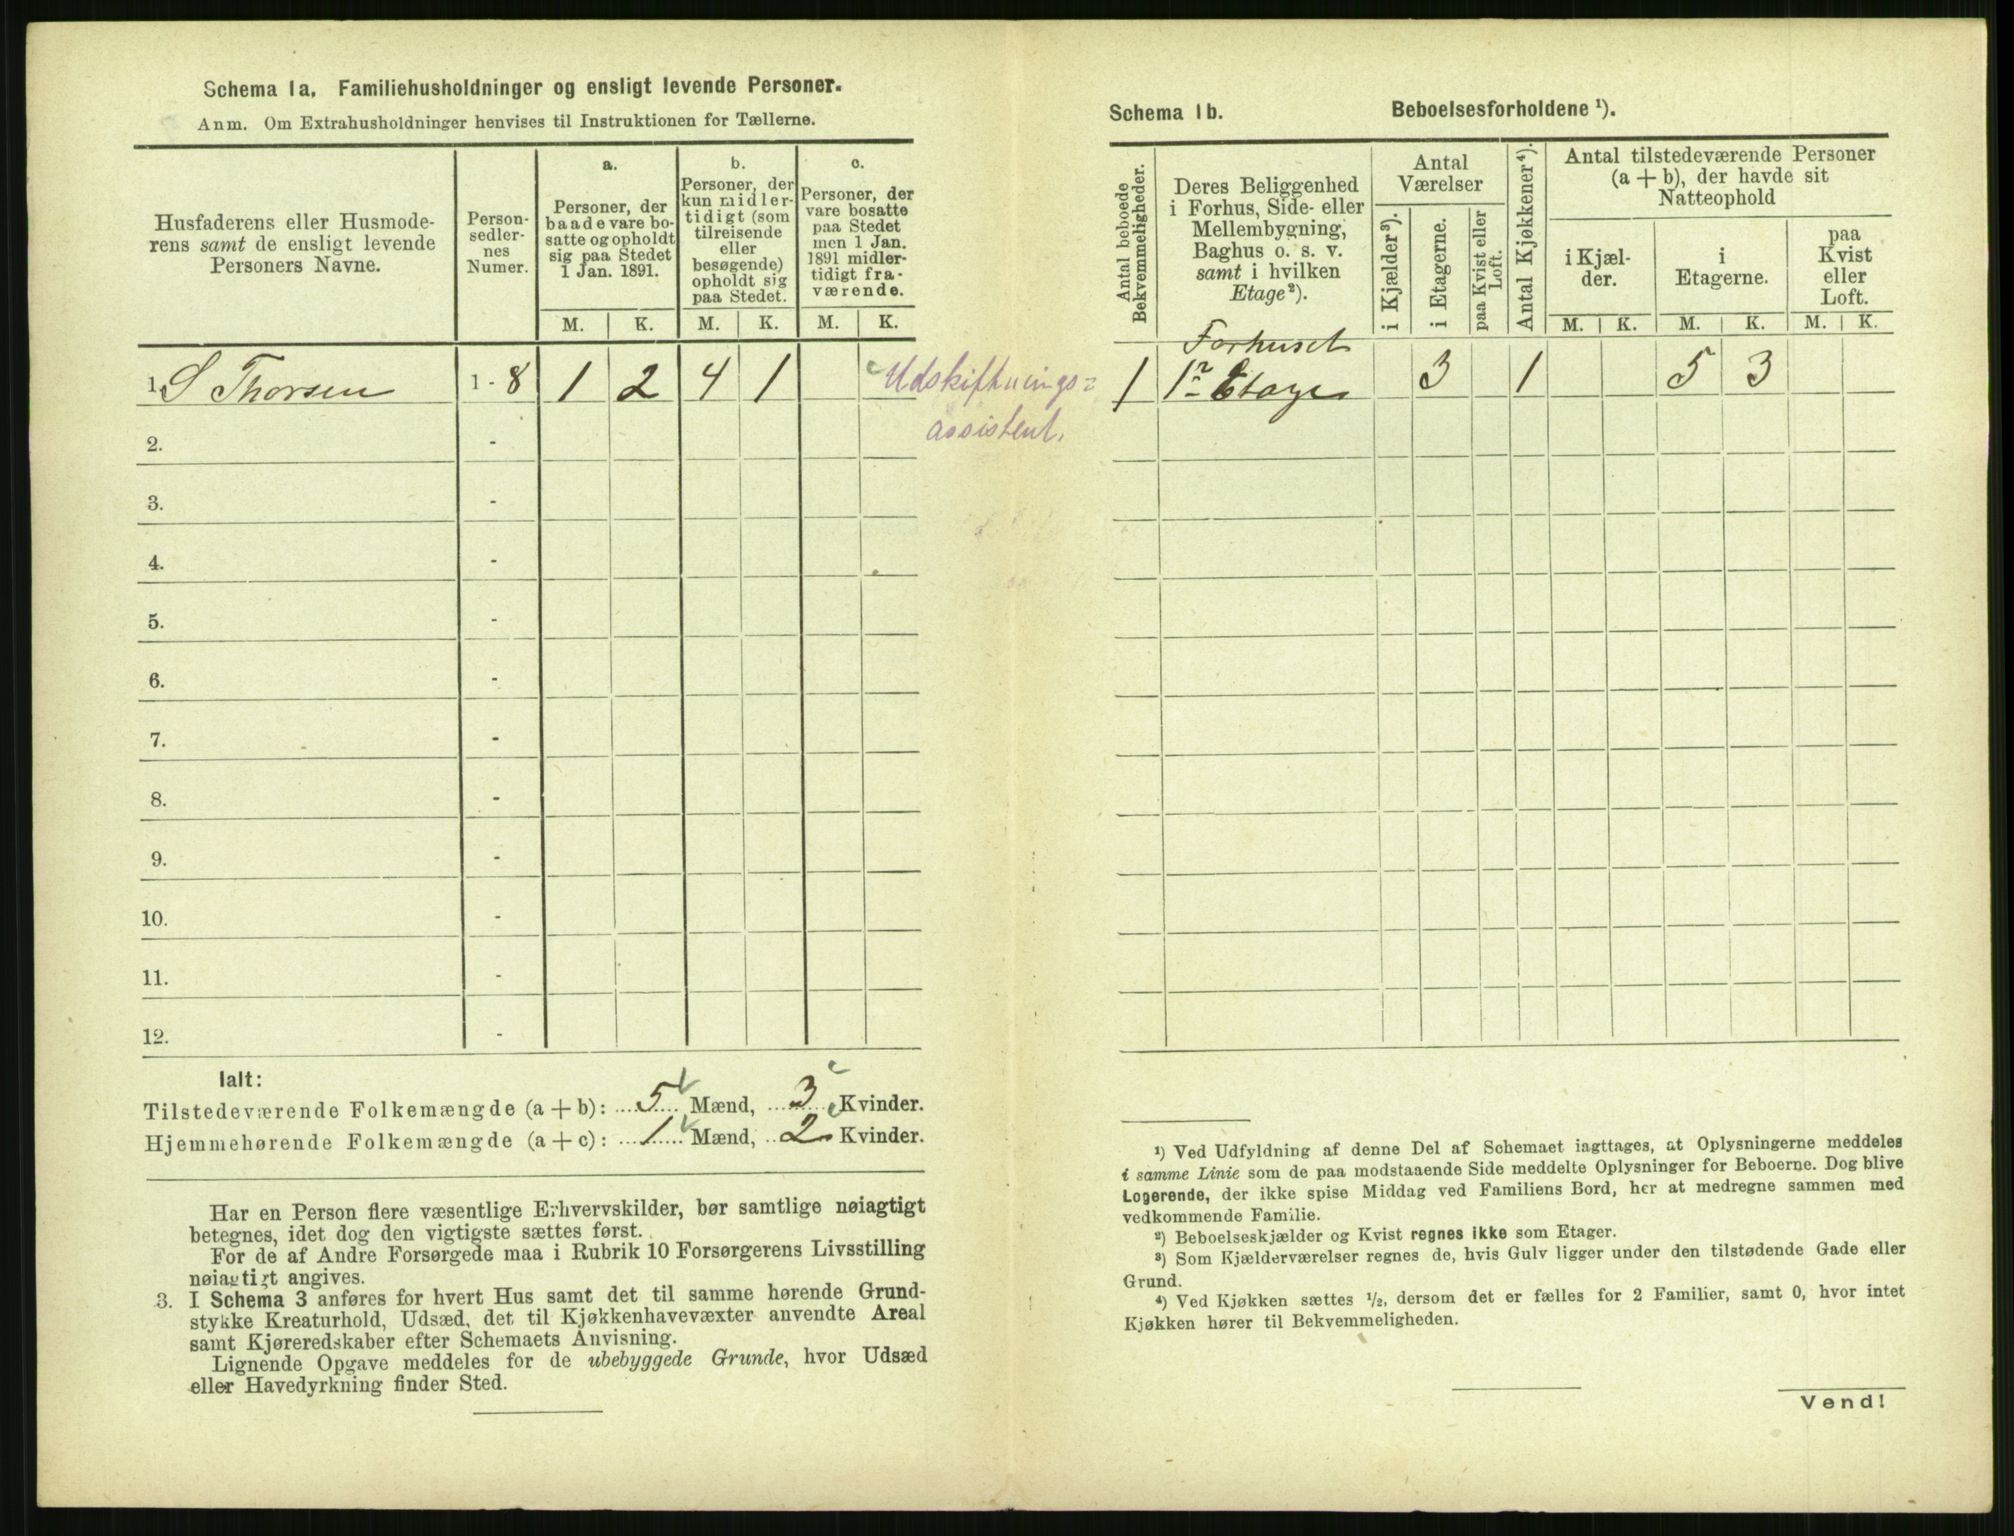 Schema 1a. Familiehusholdninger og ensligt levende Personer.
Anm. Om Extrahusholdninger henvises til Instruktionen for Tællerne.
Husfaderens eller Husmode-
rens samt de ensligt levende
Personers Navne.
Person-
sedler-
nes
Numer.
a.
Personer, der
baade vare bo-
satte og opholdt
sig paa Stedet
1 Jan. 1891.
M. K.
b.
Personer, der
kun midler-
tidigt (som
tilreisende
eller
besøgende)
opholdt sig
paa Stedet.
M. K.
c.
Personer, der
vare bosatte
paa Stedet
men 1 Jan.
1891 midler-
tidigt fra-
værende.
M. K.
1. S Thorsen 1 - 8 1 2 4 1 Udskiftnings=
assistent.
2. -
3. -
4. -
5. -
6. -
7. -
8. -
9. -
10. -
11. -
12. -
Ialt:
Tilstedeværende Folkemængde (a + b): 5 Mænd, 3 Kvinder.
Hjemmehørende Folkemængde (a + c): 1 Mænd, 2 Kvinder.
Har en Person flere væsentlige Erhvervskilder, bør samtlige nøiagtigt
betegnes, idet dog den vigtigste sættes først.
For de af Andre Forsørgede maa i Rubrik 10 Forsørgerens Livsstilling
nøiagtigt angives.
3. I Schema 3 anføres for hvert Hus samt det til samme hørende Grund-
stykke Kreaturhold, Udsæd, det til Kjøkkenhavevæxter anvendte Areal
samt Kjøreredskaber efter Schemaets Anvisning.
Lignende Opgave meddeles for de ubebyggede Grunde, hvor Udsæd
eller Havedyrkning finder Sted.
Schema 1b. Beboelsesforholdene ¹).
Antal beboede
Bekvemmeligheder.
Deres Beliggenhed
i Forhus, Side- eller
Mellembygning,
Baghus o. s. v.
samt i hvilken
Etage²).
Antal
Værelser
i Kjælder³).
i Etagerne.
paa Kvist eller
Loft.
Antal Kjøkkener⁴).
Antal tilstedeværende Personer
(a + b), der havde sit
Natteophold
i Kjæl-
der.
M. K.
i
Etagerne.
M. K.
paa
Kvist
eller
Loft.
M. K.
Forhuset
1 1ˢ Etage 3 1 5 3
¹) Ved Udfyldning af denne Del af Schemaet iagttages, at Oplysningerne meddeles
i samme Linie som de paa modstaaende Side meddelte Oplysninger for Beboerne. Dog blive
Logerende, der ikke spise Middag ved Familiens Bord, her at medregne sammen med
vedkommende Familie.
²) Beboelseskjælder og Kvist regnes ikke som Etager.
³) Som Kjælderværelser regnes de, hvis Gulv ligger under den tilstødende Gade eller
Grund.
⁴) Ved Kjøkken sættes ½, dersom det er fælles for 2 Familier, samt 0, hvor intet
Kjøkken hører til Bekvemmeligheden.
Vend!